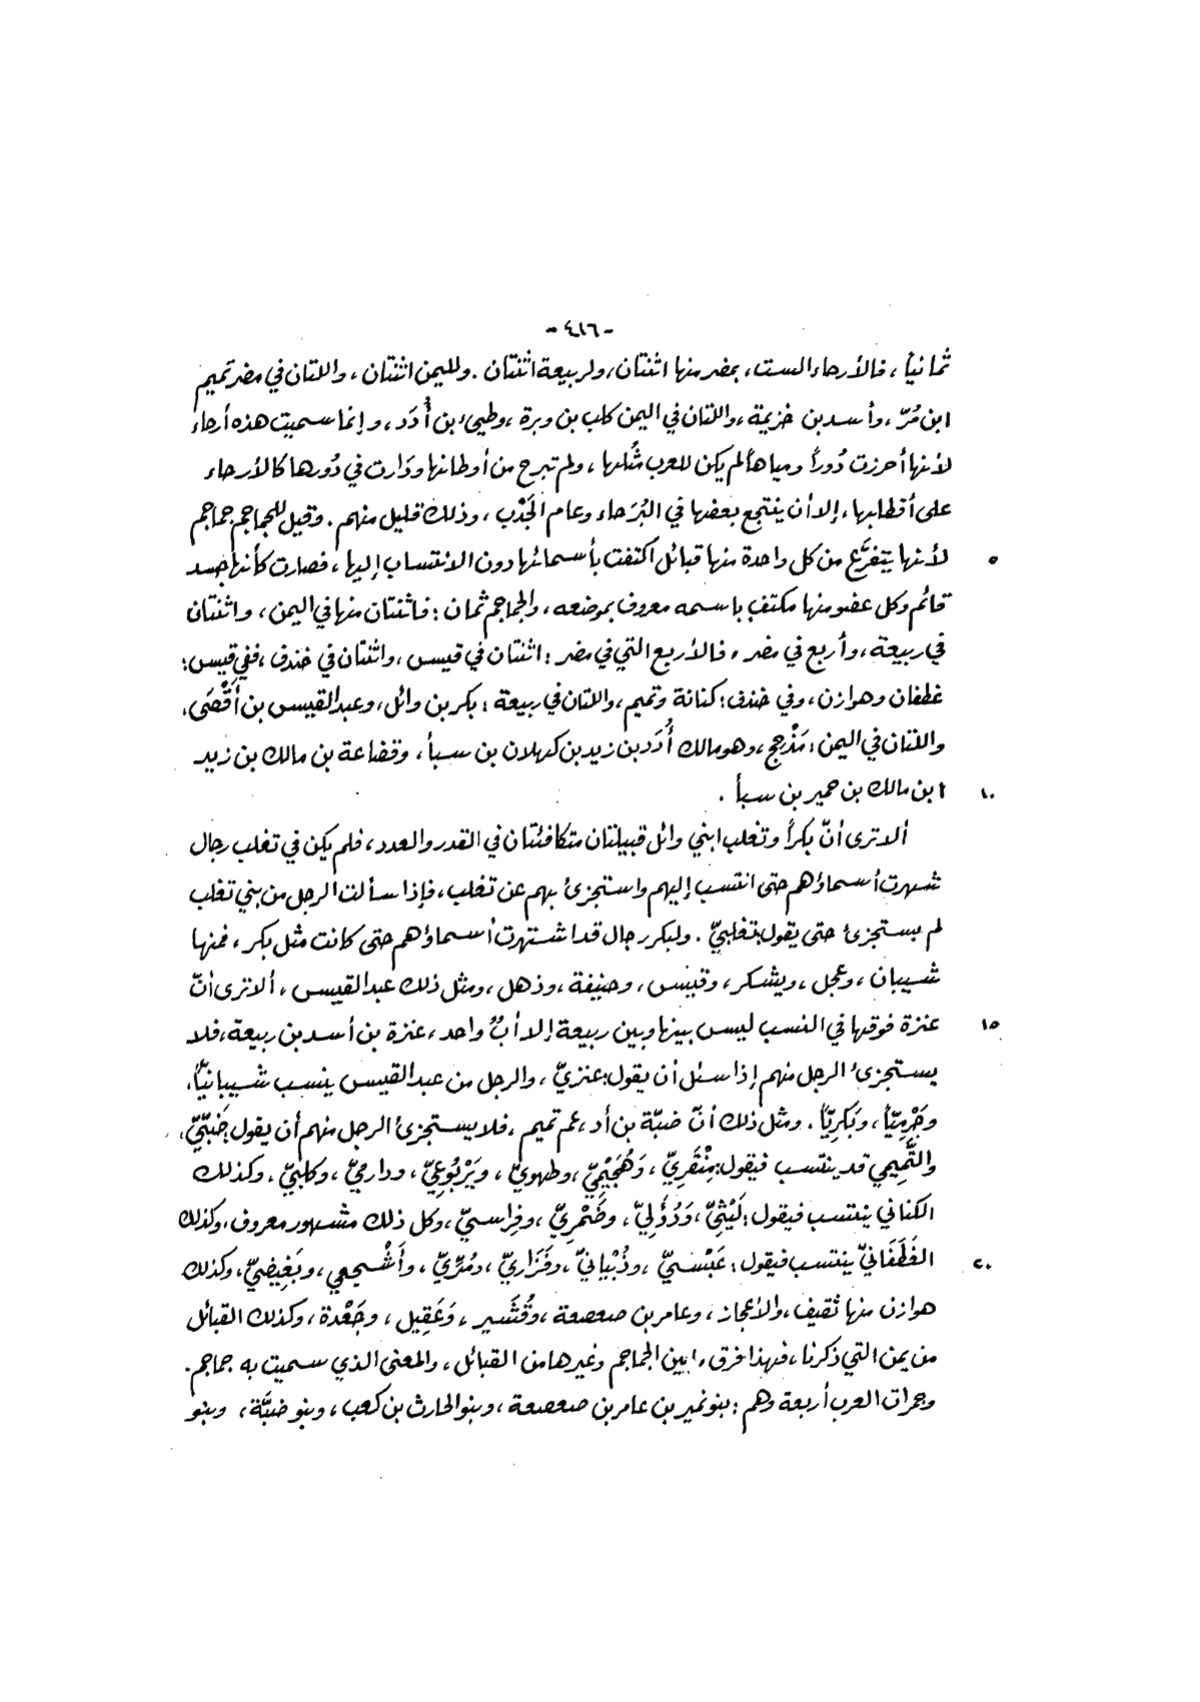 -٤١٦-
ثمانياً، فالأرحاء الست، بمضر منها اثنتان، ولربيعة اثنتان. ولليمن اثنتان، واللتان في مضر تميم
ابن مُرّ، وأسد بن خزيمة، واللتان في اليمن كلب بن وبرة، وطيء بن أُدَد، وإنما سميت هذه أرحاء
لأنها أحرزت دُوراً ومياهاً لم يكن للعرب مُثلها، ولم تبرح من أوطانها ودَارت في دُورها كالأرحاء
على أقطابها، إلا أن ينتجع بعضها في البُرَحاء وعام الجَدْب، وذلك قليل منهم. وقيل للجماجم جماجم
٥ لأنها يتفرَّع من كل واحدة منها قبائل اكتفت بأسمائها دون الانتساب إليها، فصارت كأنها جسد
قائم وكل عضو منها مكتفٍ باسمه معروف بموضعه، والجماجم ثمان: فاثنتان منها في اليمن، واثنتان
في ربيعة، وأربع في مضر، فالأربع التي في مضر: اثنتان في قيس، واثنتان في خندف، ففي قيس:
غطفان وهوازن، وفي خندف: كنانة وتميم، واللتان في ربيعة: بكر بن وائل، وعبد القيس بن أَفْصَى،
واللتان في اليمن: مَذْحِج، وهو مالك أُدَد بن زيد بن كهلان بن سبأ، وقضاعة بن مالك بن زيد
١٠ ابن مالك بن حمير بن سبأ.
ألا ترى أنّ بكراً وتغلب ابني وائل قبيلتان متكافئتان في القدر والعدد، فلم يكن في تغلب رجال
شهرت أسماؤهم حتى انتسب إليهم واستجزئ بهم عن تغلب، فإذا سألت الرجل من بني تغلب
لم يستجزئ حتى يقول: تغلبيّ. ولبكر رجال قد اشتهرت أسماؤهم حتى كانت مثل بكر، فمنها
شيبان، وعجل، ويشكر، وقيس، وحنيفة، وذهل، ومثل ذلك عبد القيس، ألا ترى أنّ
١٥ عنزة فوقها في النسب ليس بينها وبين ربيعة إلا أبٌ واحد، عنزة بن أسد بن ربيعة، فلا
يستجزئ الرجل منهم إذا سئل أن يقول: عنزيّ، والرجل من عبد القيس ينسب شيبانيّاً،
وجَرْميّاً، وبَكريّاً. ومثل ذلك أنّ ضبّة بن أد، عم تميم، فلا يستجزئ الرجل منهم أن يقول: ضَبّيّ،
والتَّمِيمي قد ينتسب فيقول: مِنْقَرِيّ، وَهُجَيْمِيّ، وطهويّ، ويَرْبُوعِيّ، ودارميّ، وكلبيّ، وكذلك
الكناني ينتسب فيقول: لَيْثِيّ، ودُؤَلِيّ، وضَمْرِيّ، وفِراسيّ، وكل ذلك مشهور معروف، وكذلك
٢٠ الغَطَفَانيّ ينتسب فيقول: عَبْسيّ، وذُبْيانيّ، وفَزَاريّ، ومُرّيّ، وأَشْجعي، وبَغِيضيّ، وكذلك
هوازن منها ثقيف، والأعجاز، وعامر بن صعصعة، وقُشَير، وَعَقِيل، وجَعْدة، وكذلك القبائل
من يمن التي ذكرنا، فهذا فرق ما بين الجماجم وغيرها من القبائل، والمعنى الذي سميت به جماجم.
وجمرات العرب أربعة وهم: بنو نمير بن عامر بن صعصعة، وبنو الحارث بن كعب، وبنو ضبَّة، وبنو